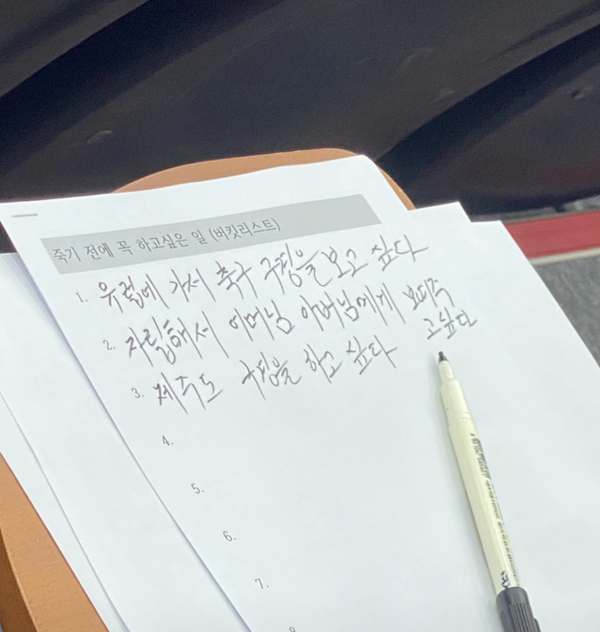 죽기 전에 꼭 하고싶은 일 (버킷리스트)
1. 유럽에 가서 축구 구경을 보고 싶다
2. 자립해서 어머님 아버님에게 보여주고싶다
3. 제주도 구경을 하고 싶다
4.
5.
6.
7.
8